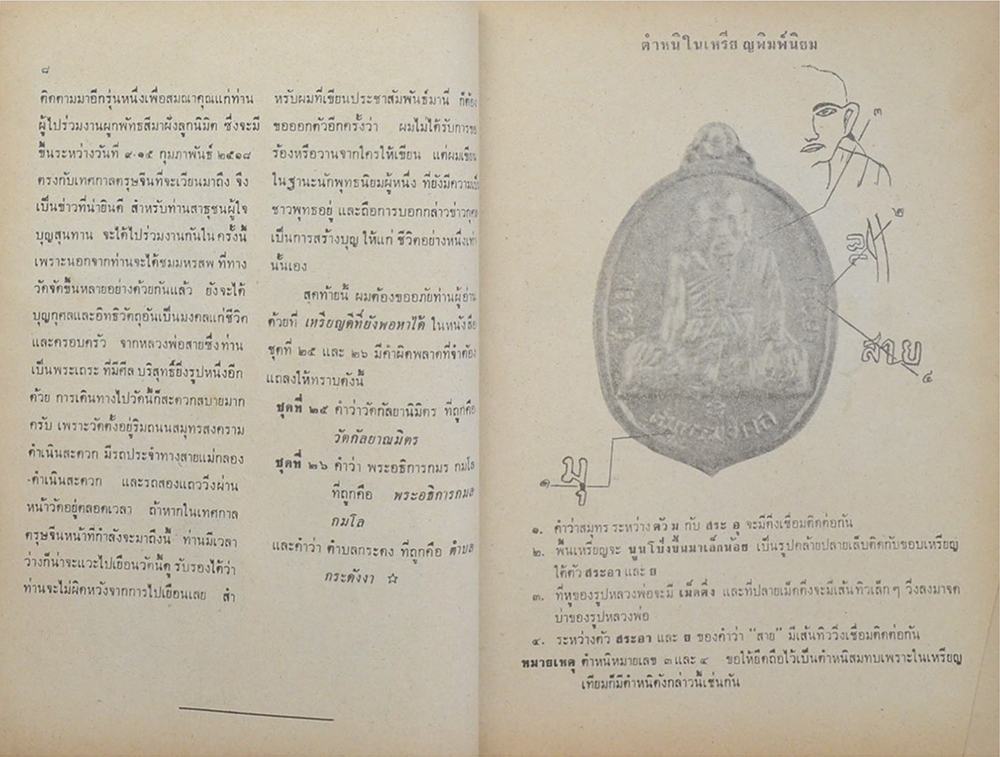 ๘
ติดตามมาอีกรุ่นหนึ่งเพื่อสมณาคุณแก่ท่าน
ผู้ไปร่วมงานผูกพัทธสีมาฝังลูกนิมิต ซึ่งจะมี
ขึ้นระหว่างวันที่ ๙-๑๕ กุมภาพันธ์ ๒๕๑๘
ตรงกับเทศกาลตรุษจีนที่จะเวียนมาถึง จึง
เป็นข่าวที่น่ายินดี สำหรับท่านสาธุชนผู้ใจ
บุญสุนทาน จะได้ไปร่วมงานกันในครั้งนี้
เพราะนอกจากท่านจะได้ชมมหรสพ ที่ทาง
วัดจัดขึ้นหลายอย่างด้วยกันแล้ว ยังจะได้
บุญกุศลและอิทธิวัตถุอันเป็นมงคลแก่ชีวิต
และครอบครัว จากหลวงพ่อสายซึ่งท่าน
เป็นพระเถระ ที่มีศีล บริสุทธิ์ยิ่งรูปหนึ่งอีก
ด้วย การเดินทางไปวัดนี้ก็สะดวกสบายมาก
ครับ เพราะวัดตั้งอยู่ริมถนนสมุทรสงคราม
ดำเนินสะดวก มีรถประจำทางสายแม่กลอง
-ดำเนินสะดวก และรถสองแถววิ่งผ่าน
หน้าวัดอยู่ตลอดเวลา ถ้าหากในเทศกาล
ตรุษจีนหน้าที่กำลังจะมาถึงนี้ ท่านมีเวลา
ว่างก็น่าจะแวะไปเยือนวัดนี้ดู รับรองได้ว่า
ท่านจะไม่ผิดหวังจากการไปเยือนเลย สำ
หรับผมที่เขียนประชาสัมพันธ์มานี่ ก็ต้อง
ขอออกตัวอีกครั้งว่า ผมไม่ได้รับการขอ
ร้องหรือวานจากใครให้เขียน แต่ผมเขียน
ในฐานะนักพุทธนิยมผู้หนึ่ง ที่ยังมีความเป็
ชาวพุทธอยู่ และถือการบอกกล่าวข่าวกุศล
เป็นการสร้างบุญ ให้แก่ ชีวิตอย่างหนึ่งเท่า
นั้นเอง
สุดท้ายนี้ ผมต้องขออภัยท่านผู้อ่าน
ด้วยที่ เหรียญดีที่ยังพอหาได้ ในหนังสือ
ชุดที่ ๒๕ และ ๒๖ มีคำผิดพลาดที่จำต้อง
แถลงให้ทราบดังนี้
ชุดที่ ๒๕ คำว่าวัดกัลยานิมิตร ที่ถูกคือ
วัดกัลยาณมิตร
ชุดที่ ๒๖ คำว่า พระอธิการกมร กมโล
ที่ถูกคือ พระอธิการกมล
กมโล
และคำว่า ตำบลกระดง ที่ถูกคือ ตำบล
กระดังงา ☆
ตำหนิในเหรียญพิมพ์นิยม
๓
๒
าย
สาย
๔
๑
มุ
๑. คำว่าสมุทร ระหว่าง ตัว ม กับ สระ อุ จะมีติ่งเชื่อมติดต่อกัน
๒. พื้นเหรียญจะ นูนโป่งขึ้นมาเล็กน้อย เป็นรูปคล้ายปลายเล็บติดกับขอบเหรียญ
ใต้ตัว สระอา และ ย
๓. ที่หูของรูปหลวงพ่อจะมี เม็ดติ่ง และที่ปลายเม็ดติ่งจะมีเส้นทิวเล็ก ๆ วิ่งลงมาจด
บ่าของรูปหลวงพ่อ
๔. ระหว่างตัว สระอา และ ย ของคำว่า "สาย" มีเส้นทิววิ่งเชื่อมติดต่อกัน
หมายเหตุ ตำหนิหมายเลข ๓ และ ๔ ขอให้ยึดถือไว้เป็นตำหนิสมทบเพราะในเหรียญ
เทียมก็มีตำหนิดังกล่าวนี้เช่นกัน